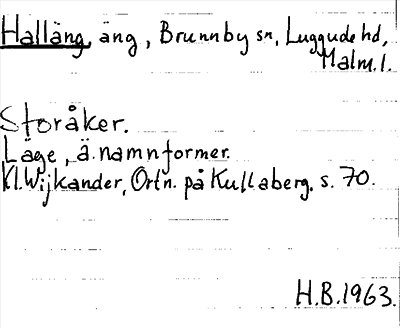 Halläng, äng, Brunnby sn, Luggude hd,
Malm.l.
Storåker.
Läge, ä. namnformer.
Kl. Wijkander, Ortn. på Kullaberg, s. 70.
H.B. 1963.